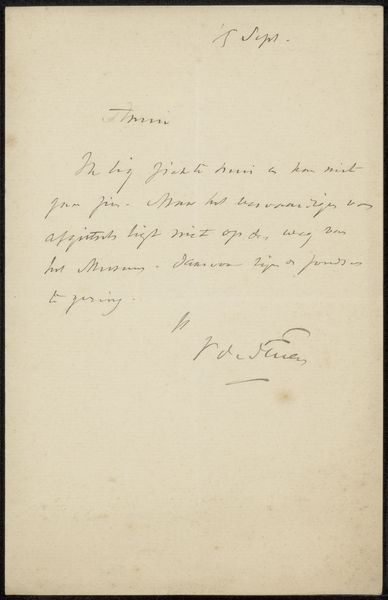 15 Sept.
Amice
Ik lig ziek te huis en kan niet
gaan zien. Maar het vervaardigen van
afgietsels ligt niet op den weg van
het Museum. Daarvoor zijn de fondsen
te gering.
tt
V de Stuers